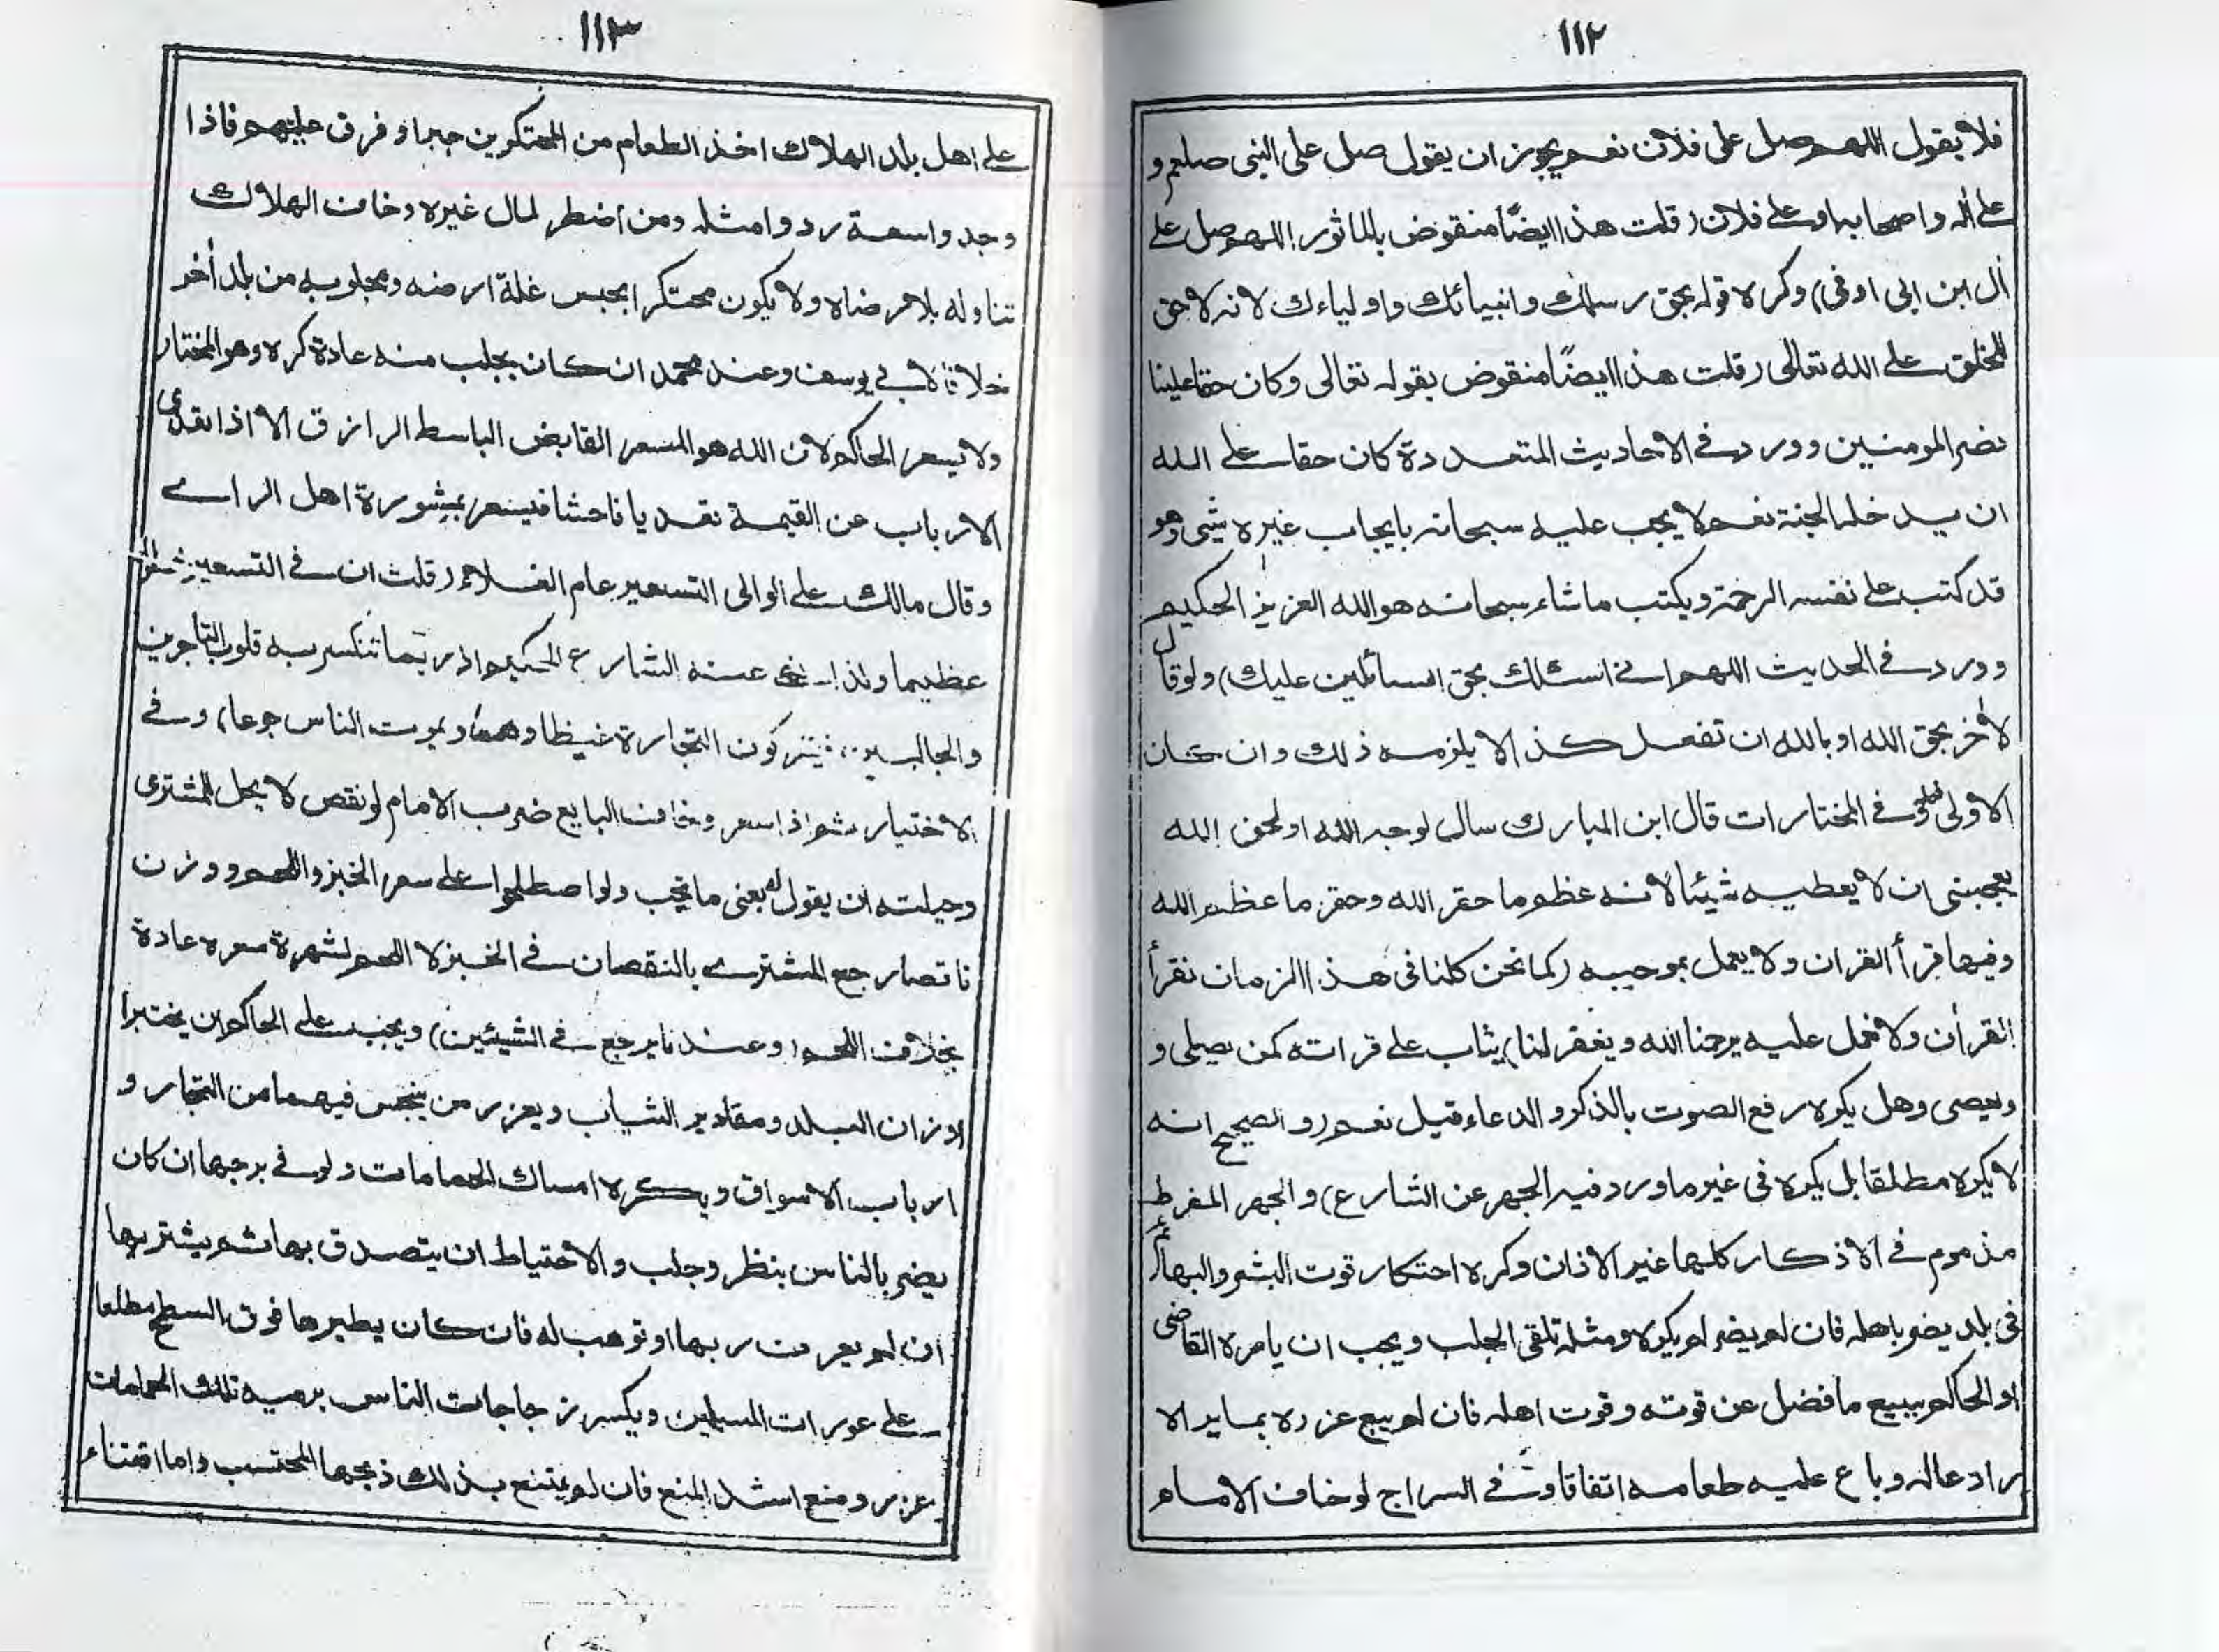 ١١٢
فلا يقول اللهم صل على فلان نعم يجوز ان يقول صل على النبى صلعم و
على اله واصحابه وعلى فلان (قلت هذا ايضًا منقوض بالماثور اللهم صل على
اٰل ابن ابى اوفى) وكره قوله بحق رسلك وانبيائك واولياءك لانه لا حق
للخلق على الله تعالى (قلت هذا ايضًا منقوض بقوله تعالى وكان حقا علينا
نصر المومنين وورد فى الاحاديث المتعددة كان حقا على الله
ان يدخله الجنة نعم لا يجب عليه سبحانه بايجاب غيره شئ وهو
قد كتب على نفسه الرحمة ويكتب ما شاء سبحانه هو الله العزيز الحكيم
وورد فى الحديث اللهم انى اسئلك بحق السائلين عليك) ولو قال
لاٰخر بحق الله او بالله ان تفعل كذا لا يلزمه ذلك وان كان
الاولى فعله وفى المختارات قال ابن المبارك سال لوجه الله او لحق الله
يعجبنى ان لا يعطيه شيئا لانه عظم ما حقر الله وحقر ما عظم الله
وفيها قرأ القران ولا يعمل بموجبه (كما نحن كلنا فى هذا الزمان نقرأ
القراٰن ولا نعمل عليه يرحمنا الله ويغفر لنا) يثاب على قراته كمن يصلى و
ويعصى وهل يكره رفع الصوت بالذكر و الدعاء قيل نعم (و الصحيح انه
لا يكره مطلقا بل يكره فى غير ما ورد فيه الجهر عن الشارع) و الجهر المفرط
مذموم فى الاذكار كلها غير الاذان وكره احتكار قوت البشر والبهائم
فى بلد يضر باهله فان لم يضر لم يكره ومثله تلقى الجلب ويجب ان يامره القاضى
او الحاكم ببيع ما فضل عن قوته وقوت اهله فان لم يبع عزره بما يراه
رادعا له وباع عليه طعامه اتفاقا وفى السراج لو خاف الامام
١١٣
على اهل بلد الهلاك اخذ الطعام من المحتكرين جبرا وفرق عليهم فاذا
وجدوا سعة ردوا مثله ومن اضطر لمال غيره وخاف الهلاك
تناوله بلا رضاه ولا يكون محتكرا بحبس غلة ارضه ومجلوبه من بلد اٰخر
خلافا لابى يوسف وعند محمد ان كان يجلب منه عادة كره وهو المختار
ولا يسعر الحاكم لان الله هو المسعر القابض الباسط الرازق الا اذا تعدى
الارباب عن القيمة تعديا فاحشا فيسعر بمشورة اهل الراى
وقال مالك على الوالى التسعير عام الغلاء (قلت ان فى التسعير خطرا
عظيما ولذا نهى عنه الشارع الحكيم اذ ربما تنكسر به قلوب التاجرين
والجالبين فيتركون التجارة غيظا وهما ويموت الناس جوعا) وفى
الاختيار ثم اذا سعر وخاف البايع ضرب الامام لو نقص لا يحل للمشترى
وحيلته ان يقول له بعنى ما تحب ولو اصطلحوا على سعر الخبز واللحم ووزن
ناقصا رجع المشترى بالنقصان فى الخبز لا اللحم لشهرة سعره عادة
بخلاف اللحم (وعندنا يرجع فى الشيئين) ويجب على الحاكم ان يختبر
اوزان البلد ومقادير الثياب ويعزر من يبخس فيهما من التجار و
ارباب الاسواق ويكره امساك الحمامات ولو فى برجها ان كان
يضر بالناس بنظر وجلب والاحتياط ان يتصدق بها ثم يشتريها
ان لم يعرف ربها او توهب له فان كان يطيرها فوق السطح مطلعا
على عورات المسلمين ويكسر زجاجات الناس برميه تلك الحمامات
عزر ومنع اشد المنع فان لم يمتنع بذلك ذبحها المحتسب واما اقتناء